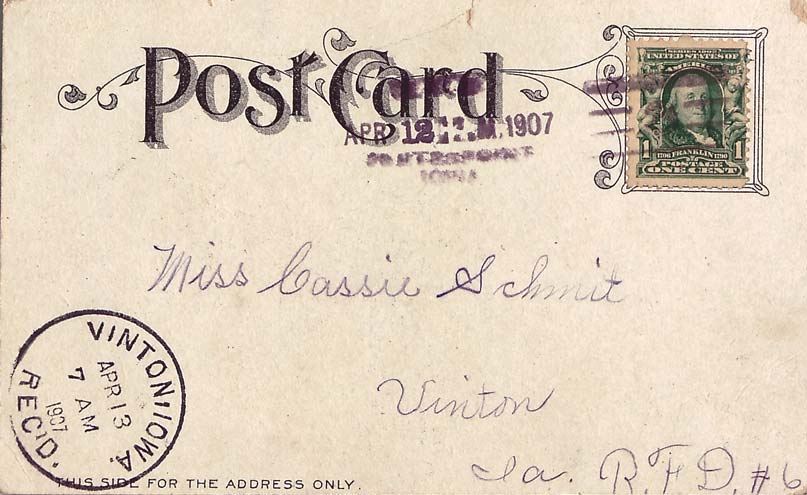 Post Card
APR 12 M. 1907
IOWA
SERIES 1902
UNITED STATES OF
1 1706 FRANKLIN 1790 1
POSTAGE
ONE CENT
Miss Cassie Schmit
VINTON, IOWA.
APR 13
7 AM
1907
REC'D.
Vinton
Ia. R.F.D. #6
THIS SIDE FOR THE ADDRESS ONLY.